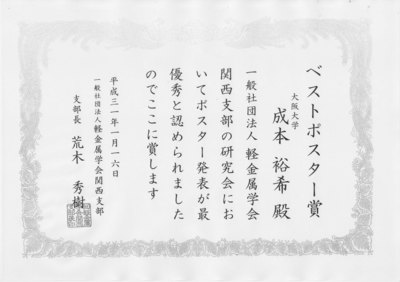 ベストポスター賞
大阪大学
成本 裕希 殿
一般社団法人 軽金属学会
関西支部の研究会にお
いてポスター発表が最
優秀と認められました
のでここに賞します
平成三一年一月一六日
一般社団法人 軽金属学会関西支部
支部長 荒木 秀樹